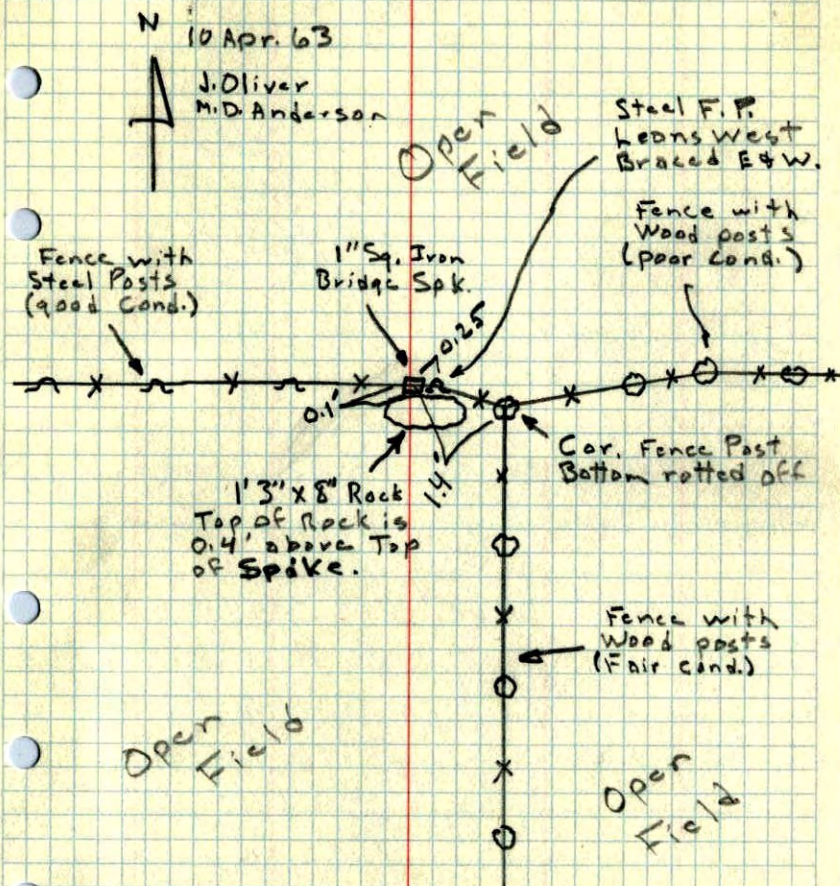 N
10 Apr. 63
J. Oliver
M.D. Anderson
Open
Field
Steel F.P.
Leans West
Braced E & W.
Fence with
Wood posts
(poor cond.)
Fence with
Steel Posts
(good Cond.)
1" Sq. Iron
Bridge Spk.
0.25
0.1'
1.4'
Cor. Fence Post
Bottom rotted off
1'3" x 8" Rock
Top of Rock is
0.4' above Top
of Spike.
Fence with
Wood posts
(Fair cond.)
Open
Field
Open
Field